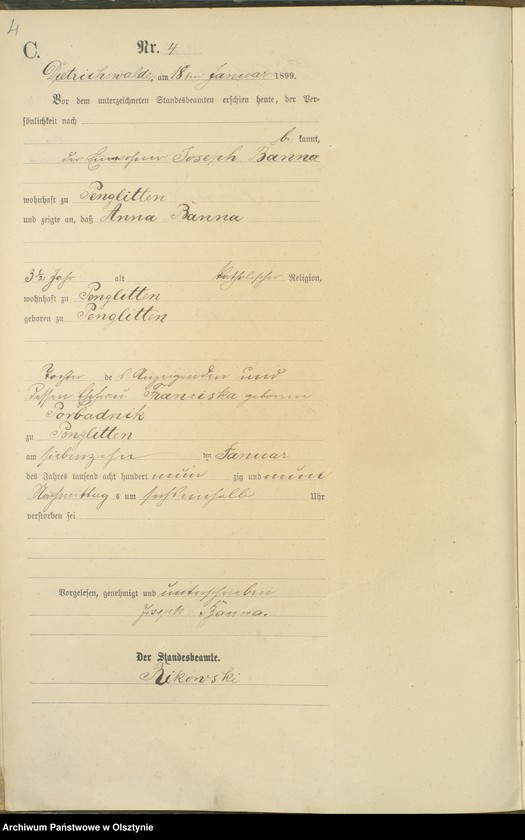 4
C.
Nr. 4
Dietrichswalde, am 18ten Januar 1899.
Vor dem unterzeichneten Standesbeamten erschien heute, der Per-
sönlichkeit nach
be kannt,
der Einwohner Joseph Banna
wohnhaft zu Penglitten
und zeigte an, daß Anna Banna
3½ Jahr alt katholischer Religion,
wohnhaft zu Penglitten
geboren zu Penglitten
Tochter des Anzeigenden und
dessen Ehefrau Franciska geborene
Porbadnik
zu Penglitten
am siebenzehn ten Januar
des Jahres tausend acht hundert neun zig und neun
Nachmittags um Uhr
verstorben sei
Vorgelesen, genehmigt und unterschrieben
Joseph Banna.
Der Standesbeamte.
Rikowski
Archiwum Państwowe w Olsztynie